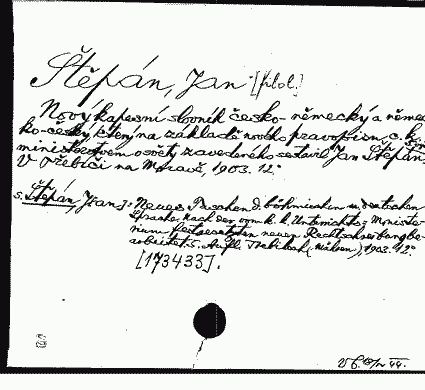 Štěpán, Jan [filol.]
Nový kapesní slovník česko-německý a něme-
cko-český, který na základě nového pravopisu, c. k.
ministerstvem osvěty zavedeného sestavil Jan Štěpán,
V Třebíči na Moravě, 1903. 12°
s. Štěpán, J[an]: Neues Taschen d. böhmischen u. deutschen
Sprache. Nach der vom k. k. Unterrichts-Ministe-
rium festgesetzten neuen Rechtschreibung be-
arbeitet. 5. Aufl. Trebitsch (Mähren), 1903. 12°.
[173433].